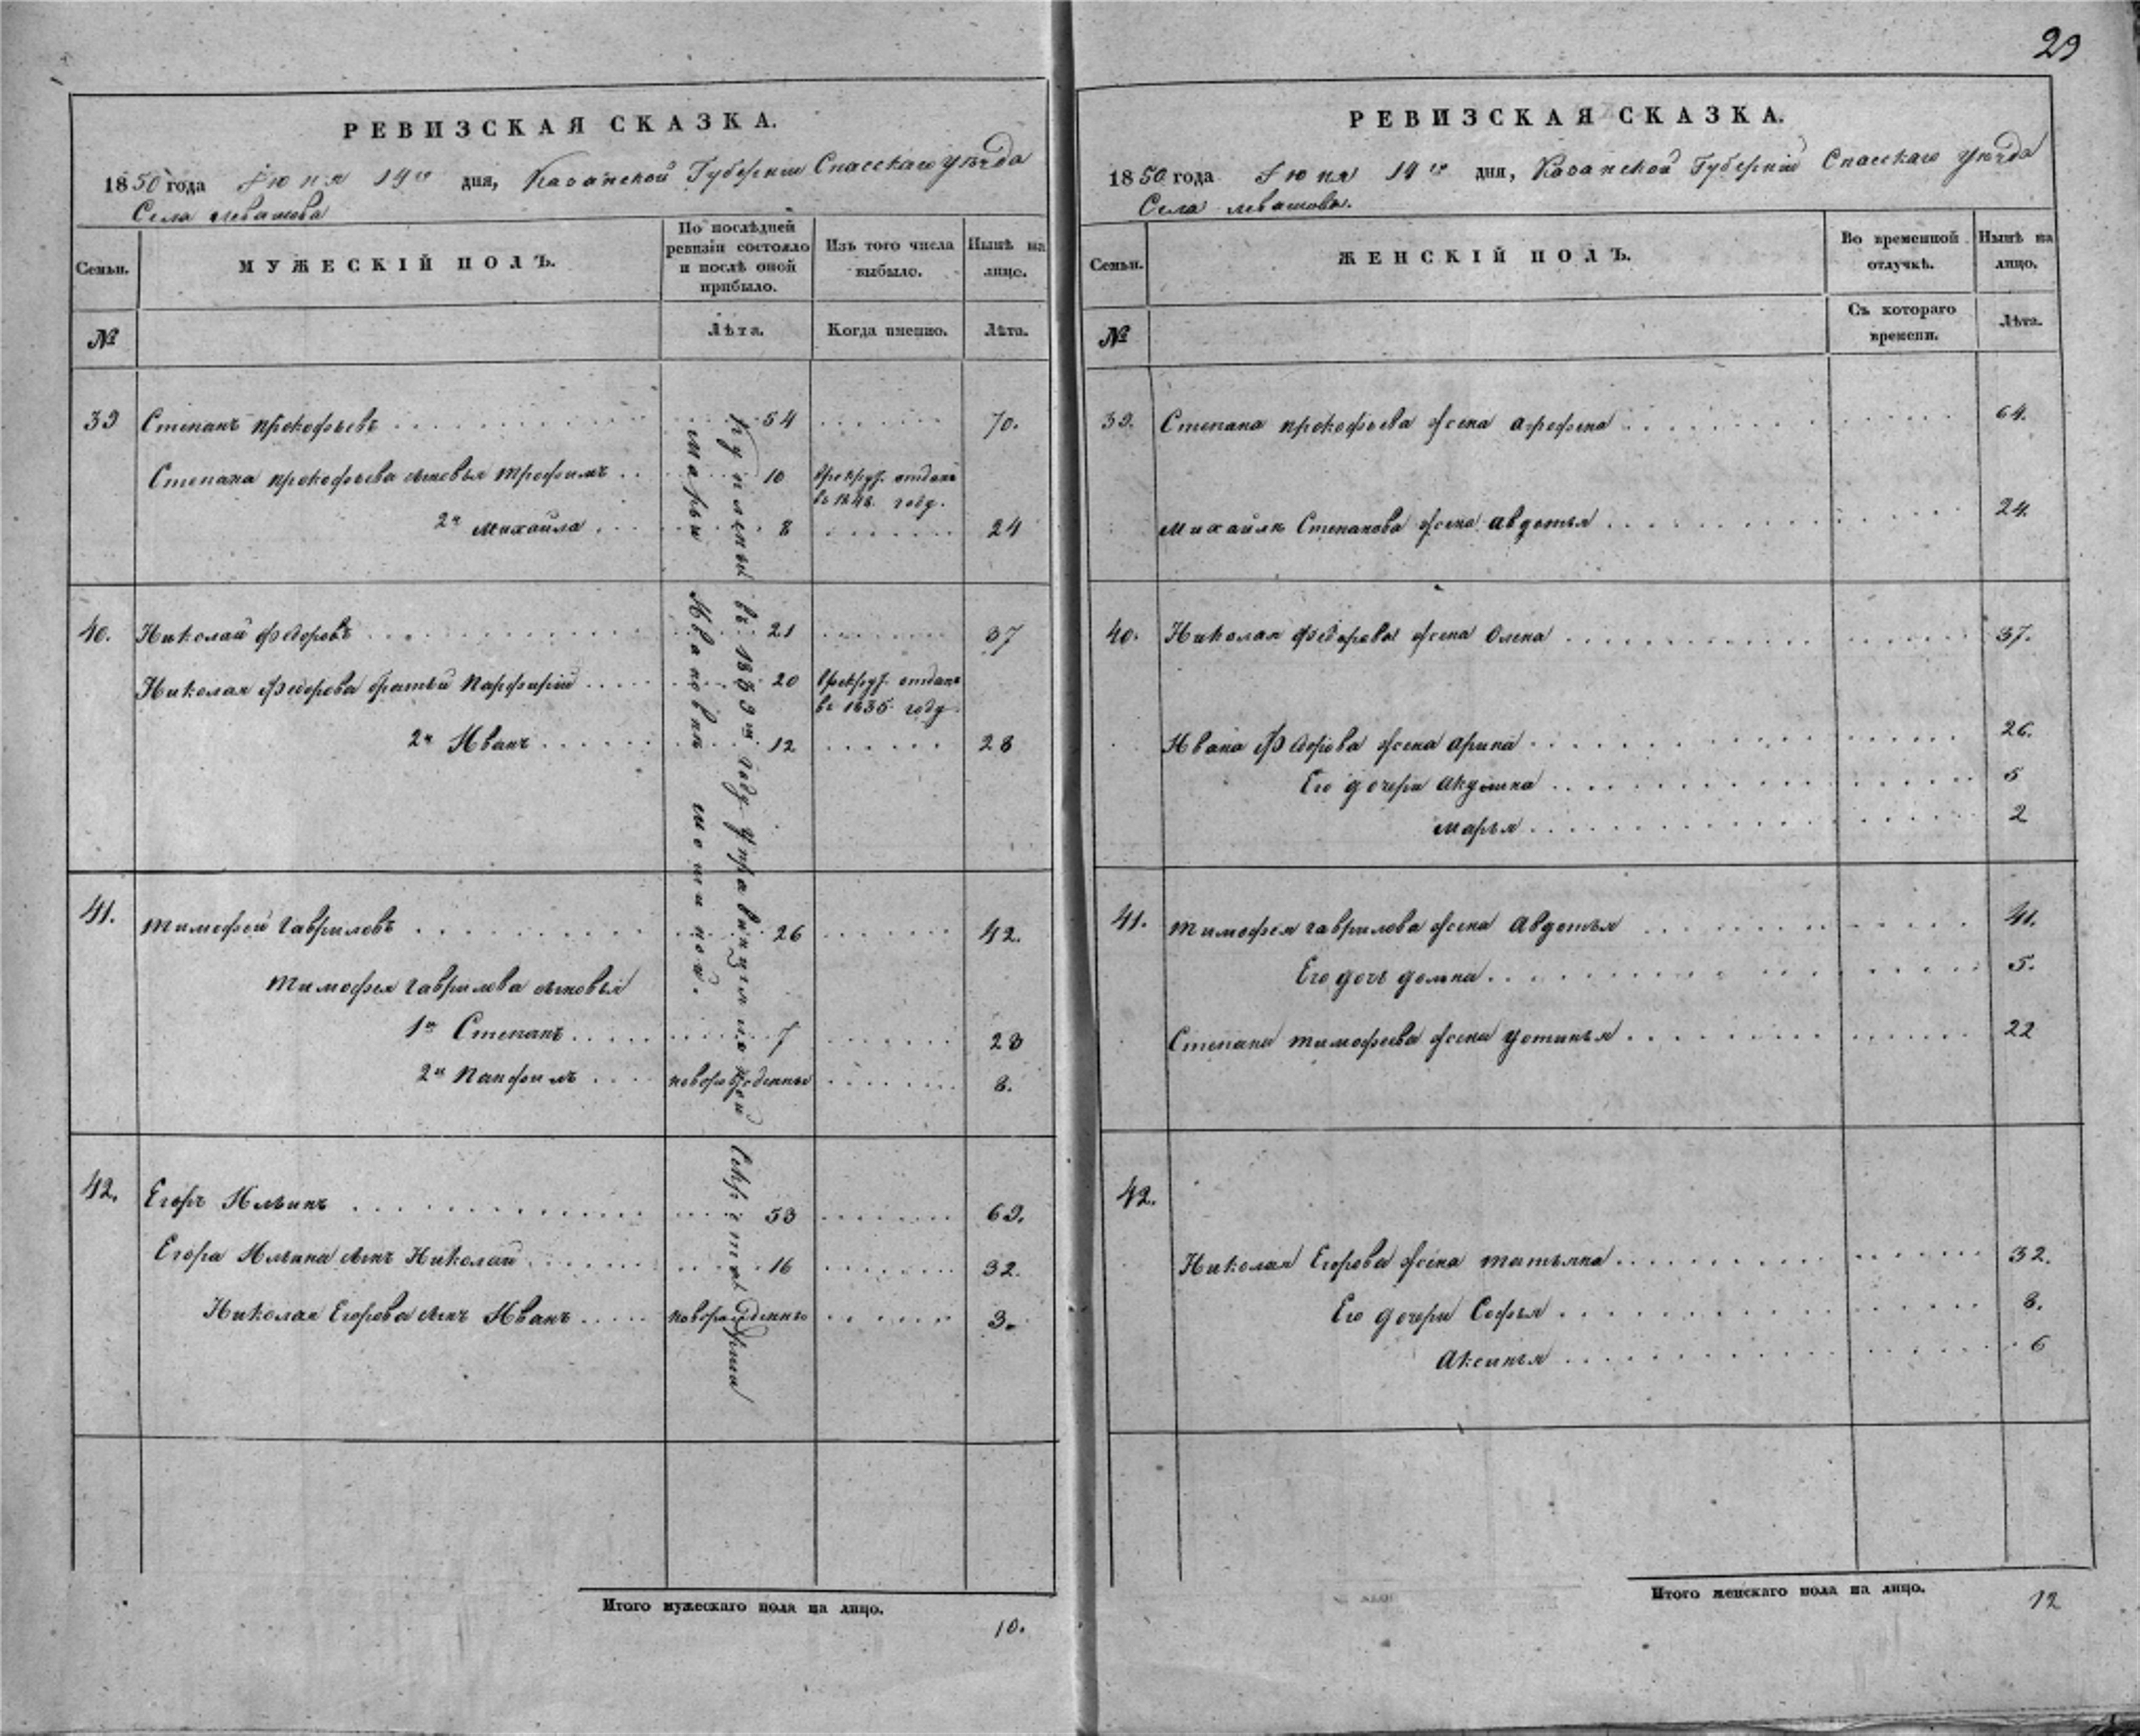 29
РЕВИЗСКАЯ СКАЗКА.
1850 года Июня 19го дня, Казанской Губерніи Спасскаго уѣзда
Села Левашова
Семьи.
МУЖЕСКІЙ ПОЛЪ.
По послѣдней ревизіи состояло и послѣ оной прибыло.
Изъ того числа выбыло.
Нынѣ на лицо.
№
Лѣта.
Когда именно.
Лѣта.
39 Степанъ Прокофьевъ 54 70.
Степана Прокофьева сыновья Трофимъ 10 врекрут. отданъ
въ 184 году.
2й Михайла 8 24
40. Николай Федоровъ 21 37
Николая Федорова братьи Парфирій 20 врекрут. отданъ
въ 1835 году
2й Иванъ 12 28
41. Тимофей Гавриловъ 26 42.
Тимофея Гаврилова сыновья
1й Степанъ 7 23
2й Панфилъ новорожденны 8.
42. Егоръ Ильинъ 53 69.
Егора Ильина сынъ Николай 16 32.
Николая Егорова сынъ Иванъ новорожденны 3.
Купленный въ 1839м году у провинціи секретарши
Марьи Ивановны
Итого мужескаго пола на лицо.
10.
РЕВИЗСКАЯ СКАЗКА.
1850 года Июня 19го дня, Казанской Губерніи Спасскаго уѣзда
Села Левашова.
Семьи.
ЖЕНСКІЙ ПОЛЪ.
Во временной отлучкѣ.
Нынѣ на лицо.
№
Съ котораго времени.
Лѣта.
39. Степана Прокофьева жена Агрофена 64.
Михайлы Степанова жена Авдотья 24.
40. Николая Федорова жена Олена 37.
Ивана Федорова жена Арина 26.
Его дочери Акулина 5
Марья 2
41. Тимофея Гаврилова жена Авдотья 41.
Его дочь Домна 5.
Степана Тимофеева жена Устинья 22
42.
Николая Егорова жена Татьяна 32.
Его дочери Софья 8.
Аксинья 6
Итого женскаго пола на лицо.
12